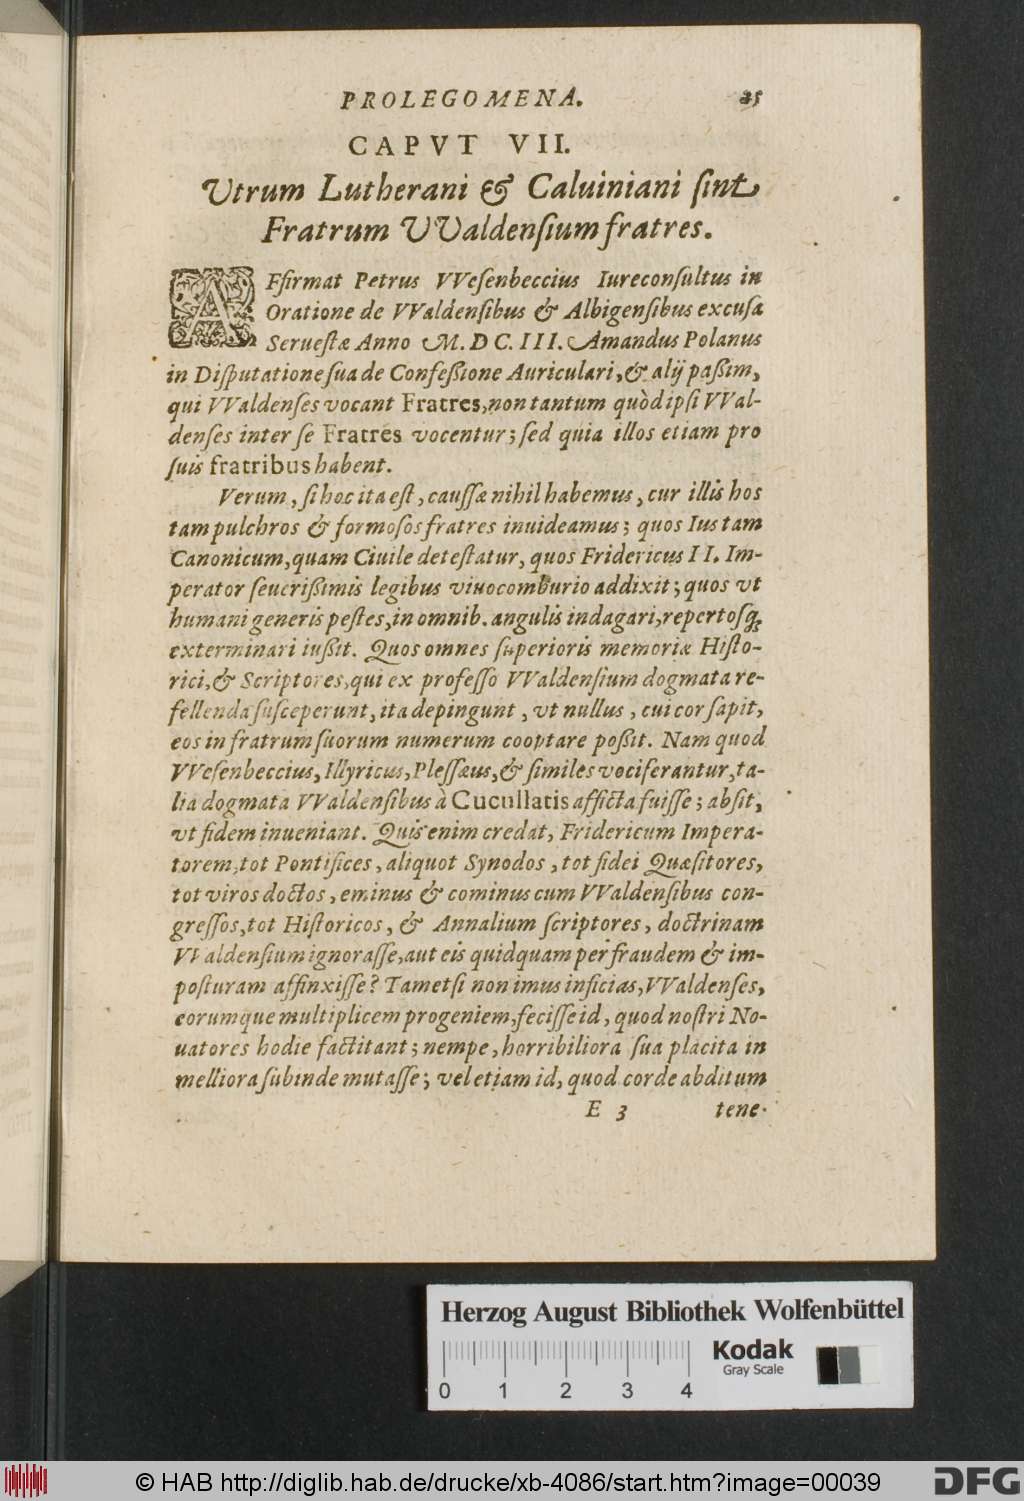 PROLEGOMENA. 35
CAPVT VII.
Vtrum Lutherani & Caluiniani ſint
Fratrum VValdenſium fratres.
AFfirmat Petrus VVeſenbeccius Iureconſultus in
Oratione de VValdenſibus & Albigenſibus excuſa
Serueſtæ Anno M. D C. III. Amandus Polanus
in Diſputatione ſua de Confeßione Auriculari, & alij paßim,
qui VValdenſes vocant Fratres, non tantum quòd ipſi VVal-
denſes inter ſe Fratres vocentur; ſed quia illos etiam pro
ſuis fratribus habent.
Verum, ſi hoc ita eſt, cauſſæ nihil habemus, cur illis hos
tam pulchros & formoſos fratres inuideamus; quos Ius tam
Canonicum, quam Ciuile deteſtatur, quos Fridericus II. Im-
perator ſeuerißimis legibus viuocomburio addixit; quos vt
humani generis peſtes, in omnib. angulis indagari, repertoſq́;
exterminari iußit. Quos omnes ſuperioris memoriæ Hiſto-
rici, & Scriptores, qui ex profeſſo VValdenſium dogmata re-
fellenda ſuſceperunt, ita depingunt, vt nullus, cui cor ſapit,
eos in fratrum ſuorum numerum cooptare poßit. Nam quod
VVeſenbeccius, Illyricus, Pleſſæus, & ſimiles vociferantur, ta-
lia dogmata VValdenſibus à Cucullatis afficta fuiſſe; abſit,
vt fidem inueniant. Quis enim credat, Fridericum Impera-
torem, tot Pontifices, aliquot Synodos, tot fidei Quæſitores,
tot viros doctos, eminus & cominus cum VValdenſibus con-
greſſos, tot Hiſtoricos, & Annalium ſcriptores, doctrinam
VValdenſium ignoraſſe, aut eis quidquam per fraudem & im-
poſturam affinxiſſe? Tametſi non imus inficias, VValdenſes,
eorumque multiplicem progeniem, feciſſe id, quod noſtri No-
uatores hodie factitant; nempe, horribiliora ſua placita in
melliora ſubinde mutaſſe; vel etiam id, quod corde abditum
E 3 tene-
Herzog August Bibliothek Wolfenbüttel
Kodak
Gray Scale
0 1 2 3 4
© HAB http://diglib.hab.de/drucke/xb-4086/start.htm?image=00039
DFG